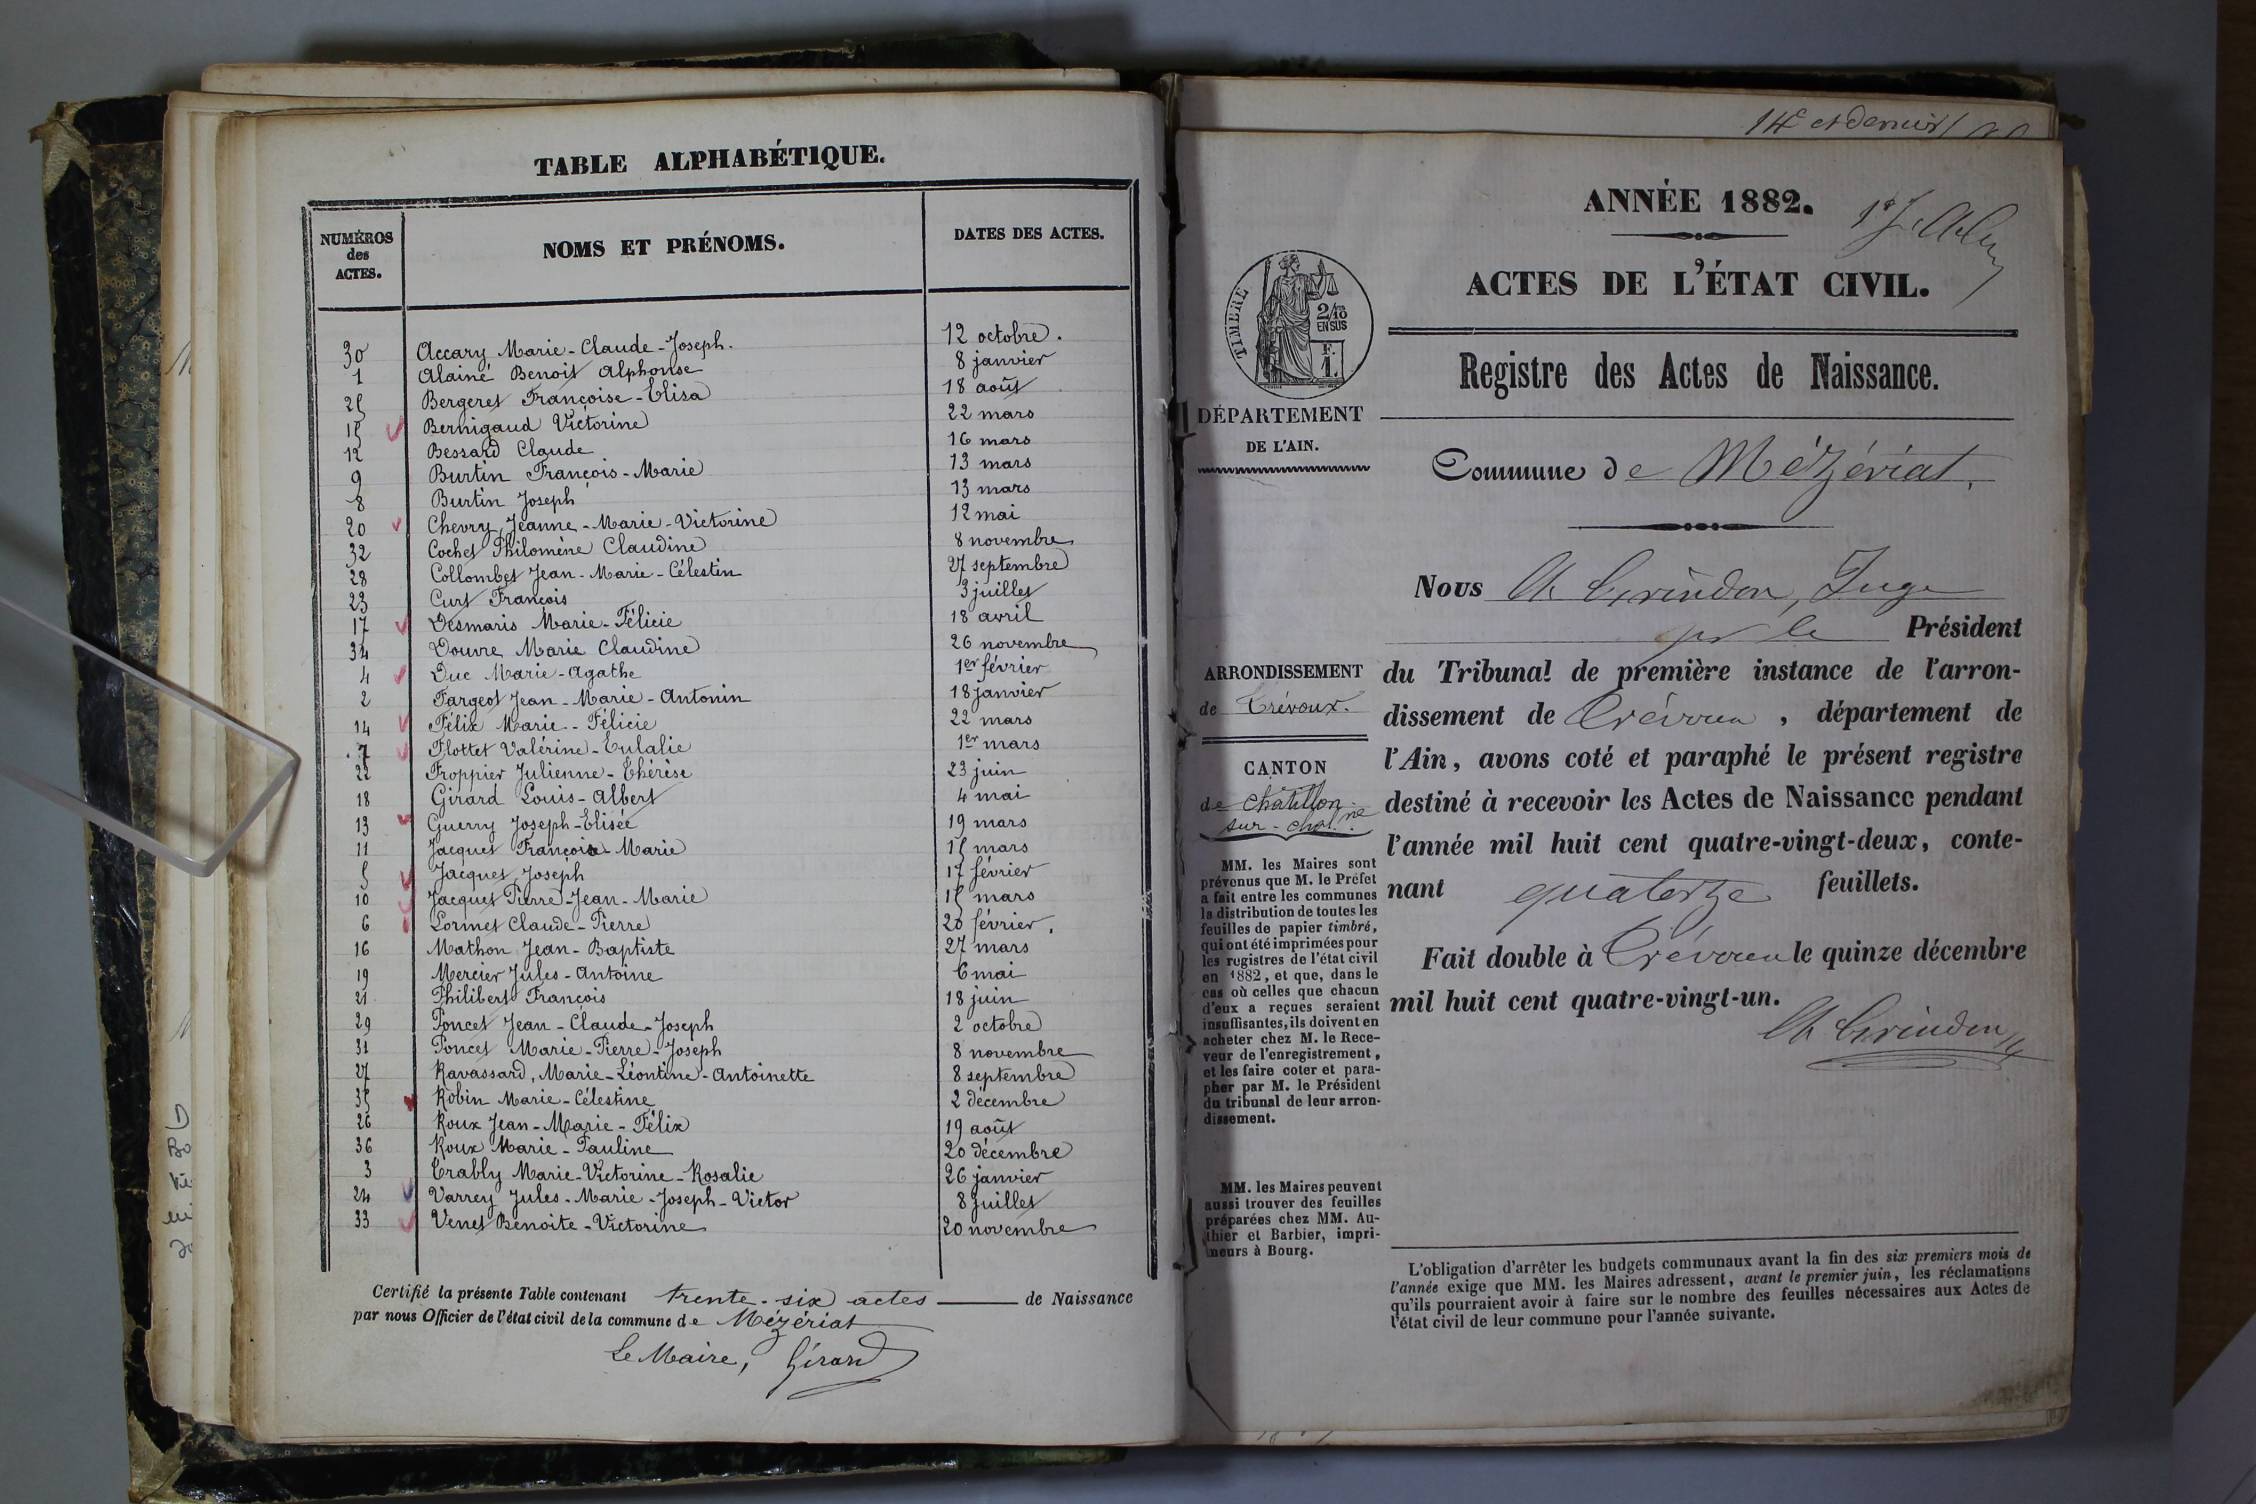 TABLE ALPHABÉTIQUE.
NUMÉROS des ACTES. NOMS ET PRÉNOMS. DATES DES ACTES.
30 Accary Marie-Claude-Joseph. 12 octobre.
1 Alainé Benoit Alphonse 8 janvier
25 Bergeret Françoise-Elisa 18 août
15 Bernigaud Victorine 22 mars
12 Bessard Claude 16 mars
9 Burtin François-Marie 13 mars
8 Burtin Joseph 13 mars
20 Chevry Jeanne-Marie-Victorine 12 mai
32 Cochet Philomène Claudine 8 novembre
28 Collombet Jean-Marie-Célestin 27 septembre
23 Curt François 3 juillet
17 Desmaris Marie-Félicie 18 avril
34 Douvre Marie Claudine 26 novembre
4 Duc Marie-Agathe 1er février
2 Fargeot Jean-Marie-Antonin 18 janvier
14 Félix Marie-Félicie 22 mars
7 Flottet Valérine-Eulalie 1er mars
22 Froppier Julienne-Thérèse 23 juin
18 Girard Louis-Albert 4 mai
13 Guerry Joseph-Elisée 19 mars
11 Jacquet François-Marie 15 mars
5 Jacquet Joseph 17 février
10 Jacquet Pierre-Jean-Marie 15 mars
6 Lormet Claude-Pierre 20 février.
16 Mathon Jean-Baptiste 27 mars
19 Mercier Jules-Antoine 6 mai
21 Philibert François 18 juin
29 Poncet Jean-Claude-Joseph 2 octobre
31 Poncet Marie-Pierre-Joseph 8 novembre
27 Ravassard, Marie-Léontine-Antoinette 8 septembre
35 Robin Marie-Célestine 2 décembre
26 Roux Jean-Marie-Félix 19 août
36 Roux Marie-Pauline 20 décembre
3 Trably Marie-Victorine-Rosalie 26 janvier
24 Varrey Jules-Marie-Joseph-Victor 8 juillet
33 Venet Benoite-Victorine 20 novembre
Certifié la présente Table contenant trente-six actes de Naissance
par nous Officier de l'état civil de la commune de Mézériat
Le Maire, Girard
14e et dernier
ANNÉE 1882.
ACTES DE L'ÉTAT CIVIL.
TIMBRE
2/10
EN SUS
F.
1.
Registre des Actes de Naissance.
DÉPARTEMENT
DE L'AIN.
Commune de Mézériat.
Nous Ch Grindon, Juge
pr le Président
du Tribunal de première instance de l'arron-
dissement de Trévoux, département de
l'Ain, avons coté et paraphé le présent registre
destiné à recevoir les Actes de Naissance pendant
l'année mil huit cent quatre-vingt-deux, conte-
nant quatorze feuillets.
Fait double à Trévoux le quinze décembre
mil huit cent quatre-vingt-un.
Ch Grindon
ARRONDISSEMENT
de Trévoux.
CANTON
de Châtillon-
sur-Chalne
MM. les Maires sont
prévenus que M. le Préfet
a fait entre les communes
la distribution de toutes les
feuilles de papier timbré,
qui ont été imprimées pour
les registres de l'état civil
en 1882, et que, dans le
cas où celles que chacun
d'eux a reçues seraient
insuffisantes, ils doivent en
acheter chez M. le Rece-
veur de l'enregistrement,
et les faire coter et para-
pher par M. le Président
du tribunal de leur arron-
dissement.
MM. les Maires peuvent
aussi trouver des feuilles
préparées chez MM. Au-
thier et Barbier, impri-
meurs à Bourg.
L'obligation d'arrêter les budgets communaux avant la fin des six premiers mois de
l'année exige que MM. les Maires adressent, avant le premier juin, les réclamations
qu'ils pourraient avoir à faire sur le nombre des feuilles nécessaires aux Actes de
l'état civil de leur commune pour l'année suivante.